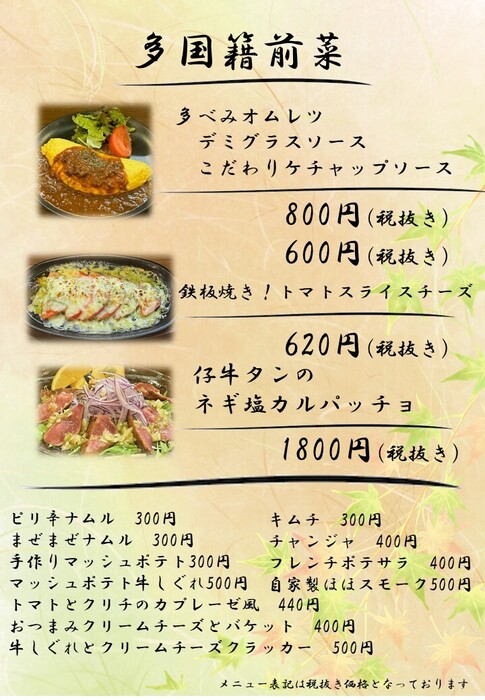 多国籍前菜
多べみオムレツ
デミグラスソース
こだわりケチャップソース
800円(税抜き)
600円(税抜き)
鉄板焼き！トマトスライスチーズ
620円(税抜き)
仔牛タンの
ネギ塩カルパッチョ
1800円(税抜き)
ピリ辛ナムル 300円
キムチ 300円
まぜまぜナムル 300円
チャンジャ 400円
手作りマッシュポテト300円
フレンチポテサラ 400円
マッシュポテト牛しぐれ500円
自家製ほほスモーク500円
トマトとクリチのカプレーゼ風 440円
おつまみクリームチーズとバケット 400円
牛しぐれとクリームチーズクラッカー 500円
メニュー表記は税抜き価格となっております